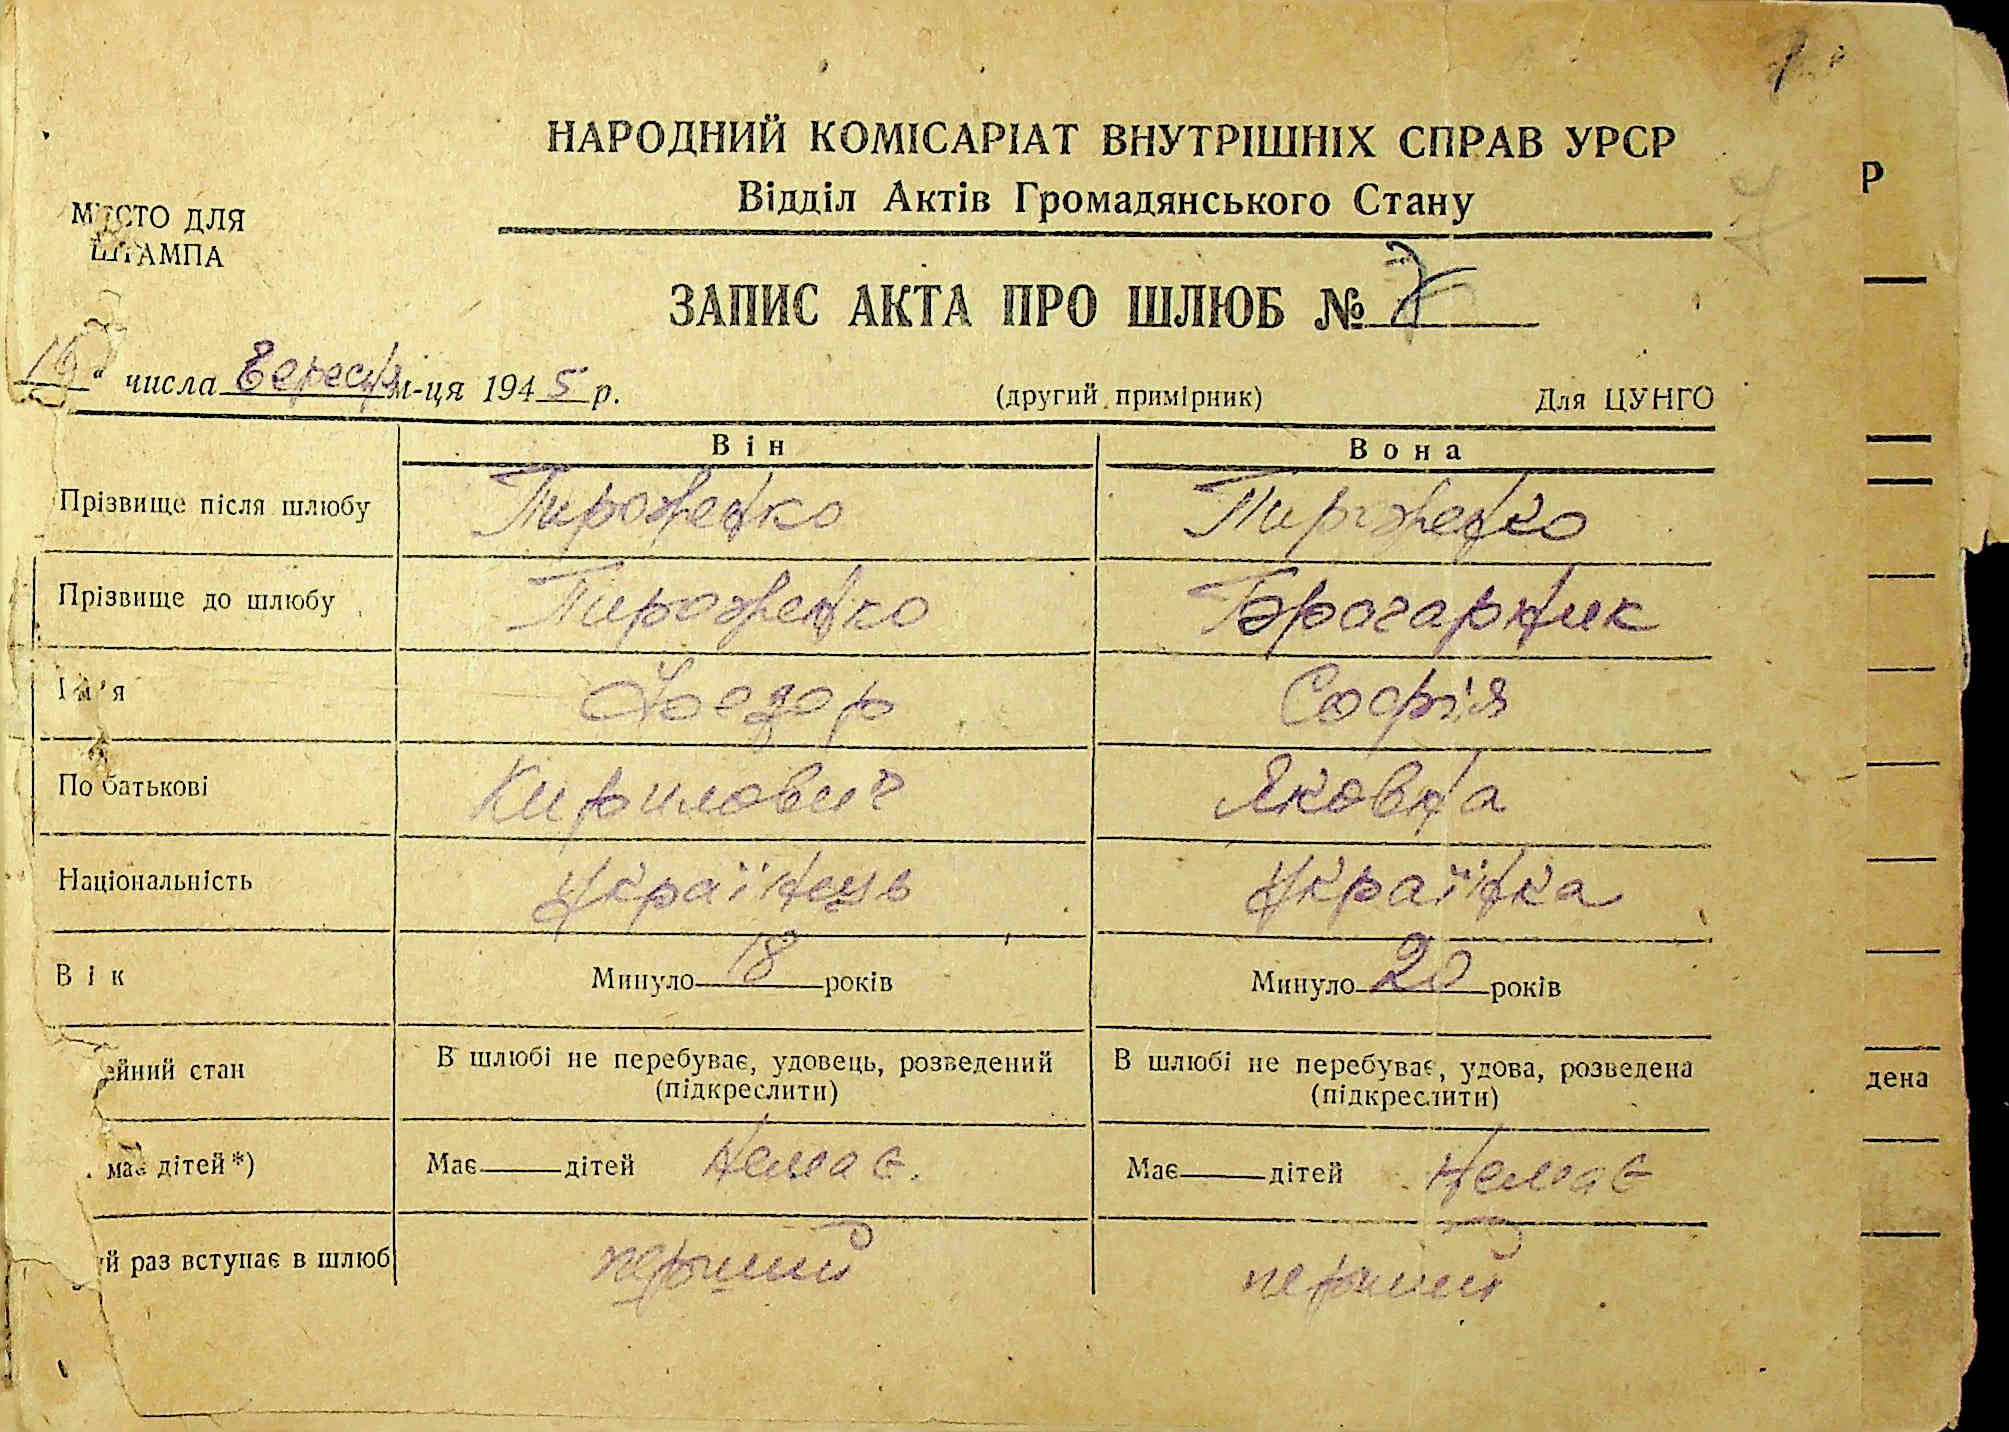 НАРОДНИЙ КОМІСАРІАТ ВНУТРІШНІХ СПРАВ УРСР
Відділ Актів Громадянського Стану
МІСТО ДЛЯ
ШТАМПА
ЗАПИС АКТА ПРО ШЛЮБ №
числа Вересня м-ця 1945 р.
(другий примірник)
Для ЦУНГО
Він Вона
Прізвище після шлюбу Пироженко Пироженко
Прізвище до шлюбу Пироженко Брогарник
Ім'я Федор Софія
По батькові Кирилович Яковна
Національність Українець Українка
Вік Минуло 18 років Минуло 20 років
ейний стан В шлюбі не перебуває, удовець, розведений В шлюбі не перебуває, удова, розведена
(підкреслити) (підкреслити)
має дітей*) Має дітей Немає. Має дітей Немає
ий раз вступає в шлюб перший перший
Р
дена